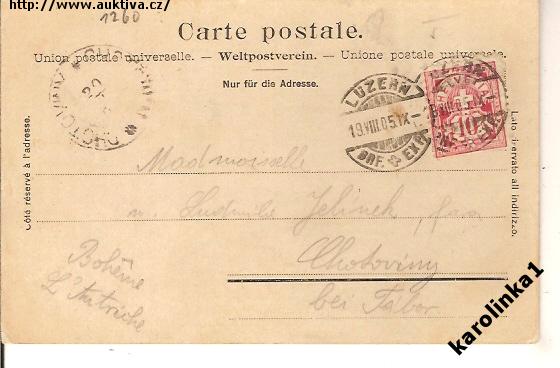 http://www.auktiva.cz/
1260
Carte postale.
Union postale universelle. — Weltpostverein. — Unione postale universale.
Nur für die Adresse.
Côté réservé à l'adresse.
Lato riservato all indirizzo.
LUZERN
19.VIII.05.IX
BRF. EXP.
10
Madmoiselle
Ludmila Jelínek
Chotoviny
bei Tábor
Bohême
L'Autriche
karolinka1